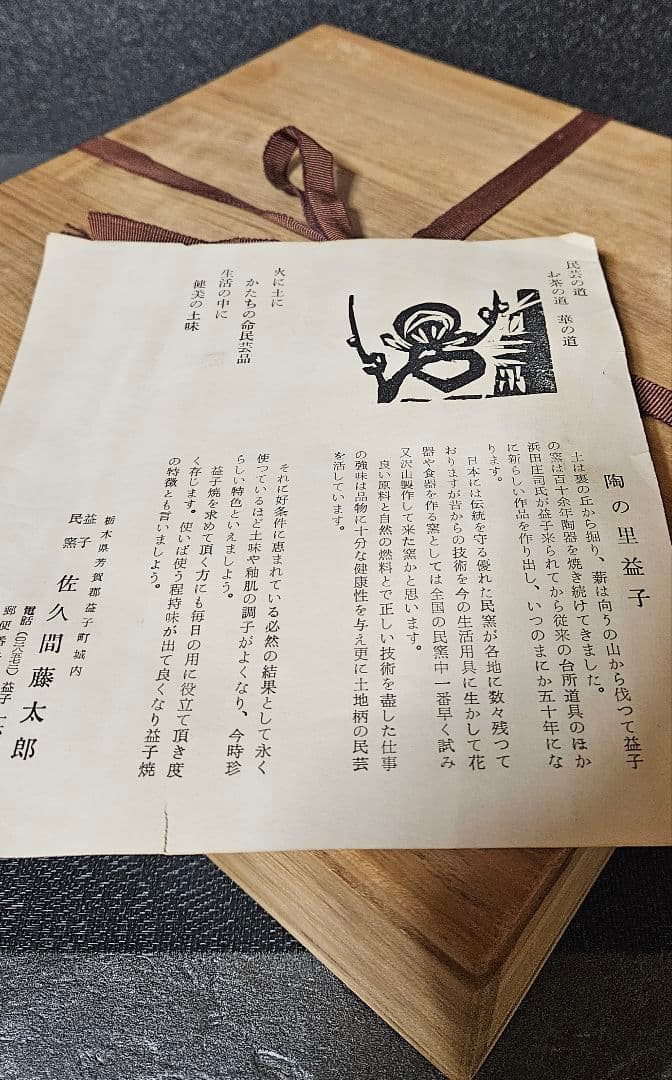 民芸の道
お茶の道 華の道
火に土に
かたちの命民芸品
生活の中に
健美の土味
陶の里益子
土は裏の丘から掘り、薪は向うの山から伐つて益子
の窯は百十余年陶器を焼き続けてきました。
浜田庄司氏が益子来られてから従来の台所道具のほか
に新らしい作品を作り出し、いつのまにか五十年にな
ります。
日本には伝統を守る優れた民窯が各地に数々残つて
おりますが昔からの技術を今の生活用具に生かして花
器や食器を作る窯としては全国の民窯中一番早く試み
又沢山製作して来た窯かと思います。
良い原料と自然の燃料とで正しい技術を盡した仕事
の強味は品物に十分な健康性を与え更に土地柄の民芸
を活しています。
それに好条件に恵まれている必然の結果として永く
使つているほど土味や釉肌の調子がよくなり、今時珍
らしい特色といえましょう。
益子焼を求めて頂く方にも毎日の用に役立て頂き度
く存じます。使いば使う程持味が出て良くなり益子焼
の特徴とも言いましょう。
栃木県芳賀郡益子町城内
益子
民窯 佐久間藤太郎
電話
郵便番 益子